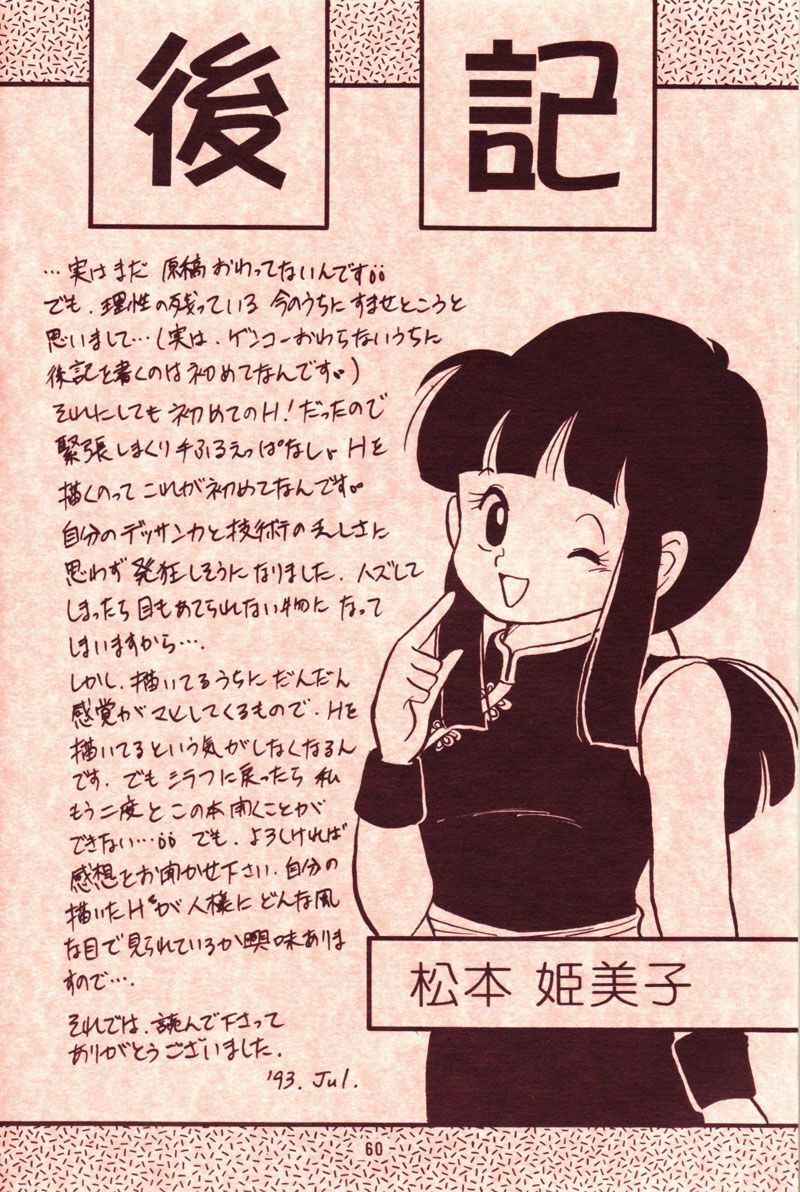 後記
…実はまだ 原稿おわってないんですöö
でも、理性の残っている 今のうちに すませとこうと
思いまして…(実は、ゲンコーおわらないうちに
後記を書くのは初めてなんです。)
それにしても 初めてのH!だったので
緊張しまくり手ふるえっぱなしょ Hを
描くのって これが初めてなんです。
自分のデッサン力と技術の乏しさに
思わず発狂しそうになりました。ハズして
しまったら目もあてられない物に なって
しまいますから…。
しかし、描いてるうちに だんだん
感覚がマヒしてくるもので、Hを
描いてるという気がしなくなるん
です。でもシラフに戻ったら 私
もう二度と この本開くことが
できない…öö でも、よろしければ
感想をお聞かせ下さい。自分の
描いたHが人様に どんな風
な目で見られているか興味ありま
すので…。
それでは、読んで下さって
ありがとうございました。
'93. Jul.
松本 姫美子
60